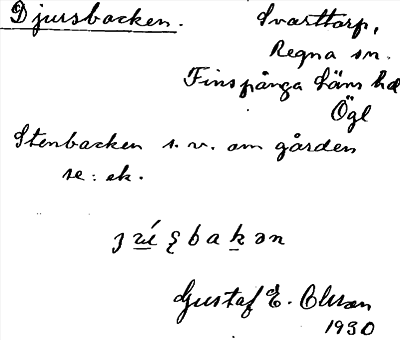 Djursbacken.
Svarttorp,
Regna sn.
Finspånga läns hd
Ögl
Stenbacken s. v. om gården
se: ek.
Gustaf E. Olsson
1930